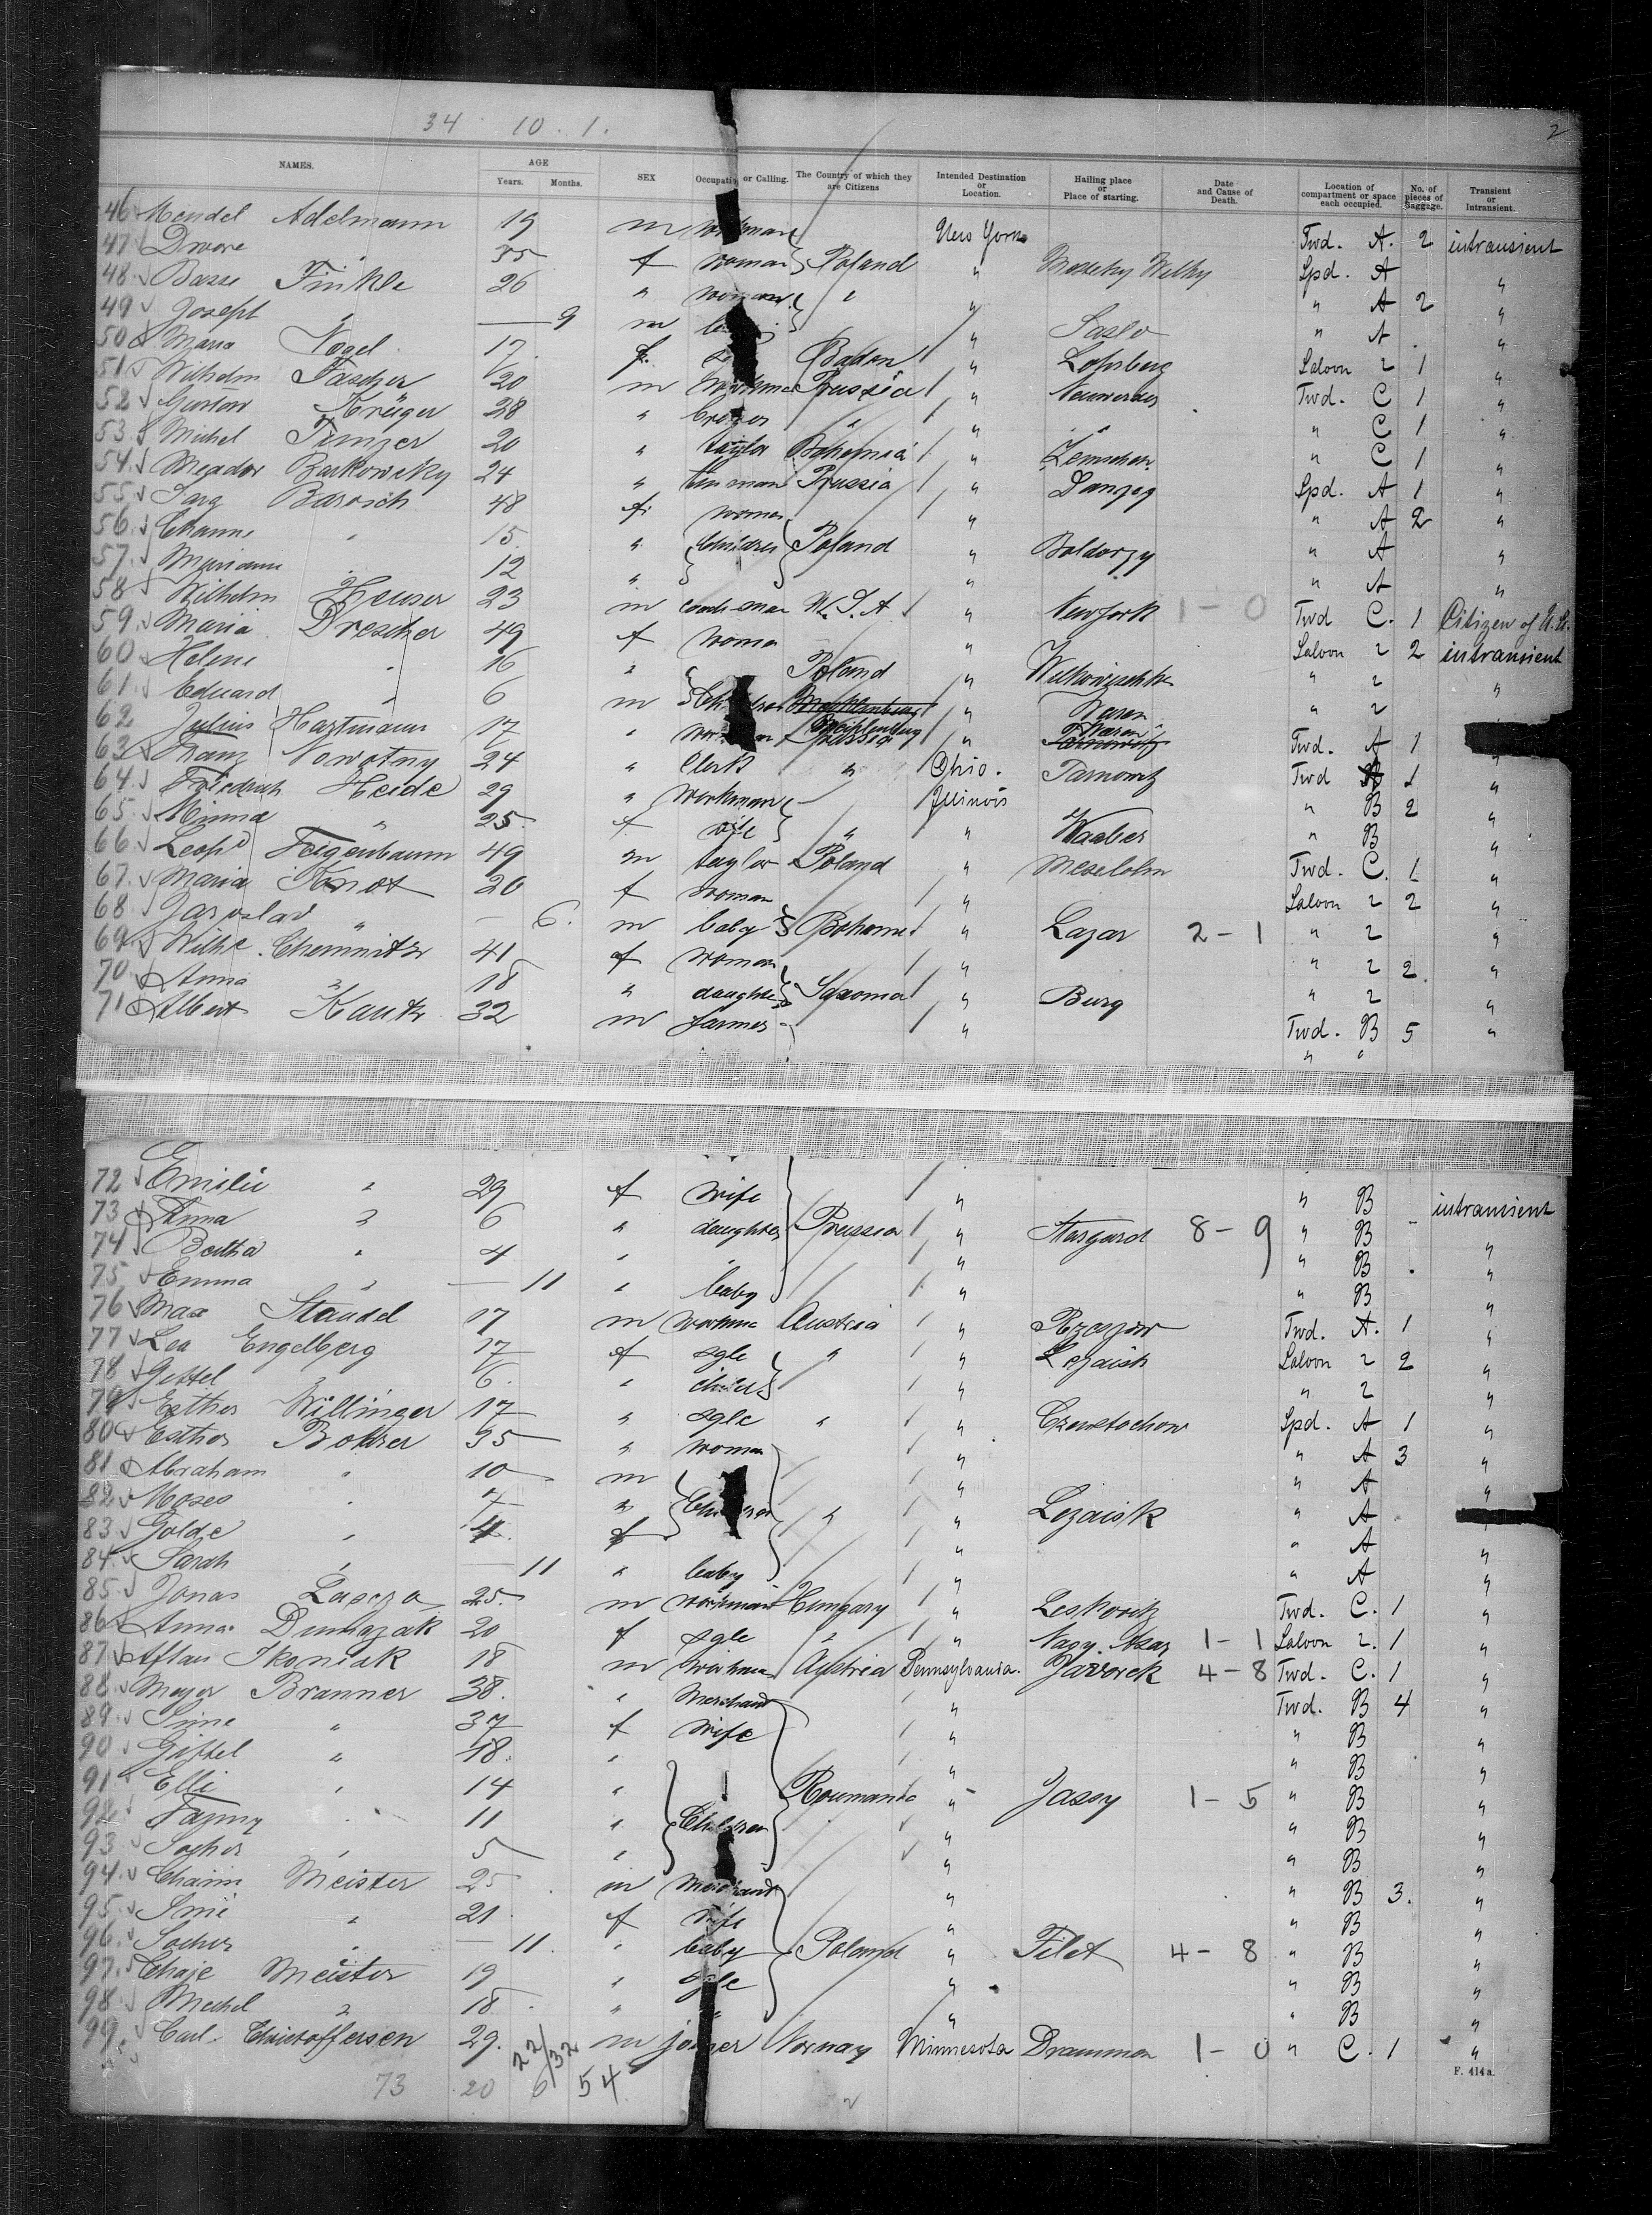 34 10. 1.
2
NAMES. AGE SEX Occupation or Calling. The Country of which they are Citizens Intended Destination or Location. Hailing place or Place of starting. Date and Cause of Death. Location of compartment or space each occupied. No. of pieces of Baggage. Transient or Intransient.
Years. Months.
46 Mendel Adelmann 19 m workman New York Twd. A. 2 intransient
47 Dwore " 35 f woman Poland " Spd. A "
48 Basse Finkle 26 " woman " " " A 2 "
49 Joseph " — 9 m " Saslo " A "
50 Maria Vogel 17 f. Baden " Lohrberg Saloon 2 1 "
51 Wilhelm Tascher 20 m workma Prussia " Twd. C 1 "
52 Gustav Krüger 28 " " " " " C 1 "
53 Michel Tinzer 20 " taylor Bohemia " Zemschen " C 1 "
54 Barkowsky 24 " tinman Prussia " Danzig Spd. A 1 "
55 Sarg Barosch 48 f. woman " " A 2 "
56 Channe " 15. " Children Poland " " A "
57 Mariann " 12 " " " A "
58 Wilhelm Heuser 23 m coach-man U.S.A " New York 1-0 Twd C. 1 Citizen of U.S.
59 Maria Drescher 49 f woma " Saloon 2 2 intransient
60 Helene " 16 " Poland " " 2 "
61 Eduard " 6 m Children Mecklenburg " Waren " 2 "
62 Julius Hartmann 17 " workman Mecklenburg Prussia " Waren Tarnowitz Twd. A 1
63 Franz Nowotny 24 " Clerk " Ohio. Tarnowitz Twd 1 "
64 Friedrich Heide 29 " workman Illinois " B 2 "
65 Minna " 25. f wife " " " B "
66 Leopd Feigenbaum 49 m taylor Poland " Twd. C. 1 "
67 Maria Knot 20 f woman " Saloon 2 2 "
68 Jaroslav " — 6. m baby Bohemia " Lazar 2-1 " 2 "
69 Wilhe. Chemnitzer 41 f woman " " 2 2. "
70 Anna " 18 " daughter Saxonia " Burg " 2 "
71 Albert Kautz 32 m farmer " Twd. B 5 "
72 Emilie " 29 f wife " " B intransient
73 Anna " 6 " daughter Prussia " Stargard 8-9 " B "
74 Bertha " 4 " " " " B "
75 Emma " — 11 " baby " " B "
76 Max Staudel 17 m workma Austria " Rzeszow Twd. A. 1 "
77 Lea Engelberg 17 f sgle " " Lezaisk Saloon 2 2 "
78 Gettel " 6. " child " " 2 "
79 Esther Willinger 17 " sgle " " Czenstochow Spd. A 1 "
80 Esther Bohrer 35 " woman " " A 3 "
81 Abraham " 10 m " " A "
82 Moses " 7 " Children " " Lezaisk " A "
83 Golde " 4. f " " A "
84 Sarah " — 11 " baby " " A "
85 Jonas Lascza 25. m workman Hungary " Leskovitz Twd. C. 1 "
86 Anna Dumazak 20 f sgle " " 1-1 Saloon 2. 1 "
87 Aftan Ikoniak 18 m workma Austria Pennsylvania. Javorek 4-8 Twd. C. 1 "
88 Mayer Branner 38. " Merchand " Twd. B 4 "
89 " 37 f wife " " B "
90 Gittel " 18. " " " B "
91 Elli " 14 " Roumania " Jassy 1-5 " B "
92 Fanny " 11 " Children " " B "
93 Socher " 5 " " " B "
94 Chaim Meister 25 m Merchand " " B 3. "
95 " 21. f wife " " B "
96 Socher " — 11. " baby Poland " Tilet 4-8 " B "
97 Chaje Meister 19 " sgle " " B "
98 Mechel " 18 " " " " B "
99 Carl. Christoffersen 29. m joiner Norway Minnesota Drammen 1-0 " C. 1 "
22/32
73 20 6 54
2
F. 414a.